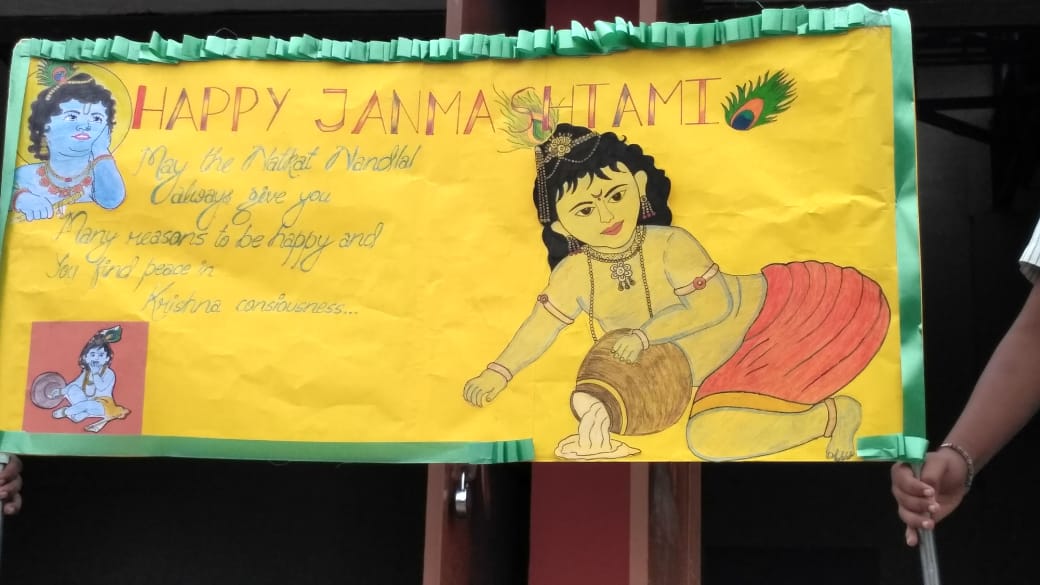 HAPPY JANMASHTAMI
May the Natkat Nandlal
always give you
Many reasons to be happy and
You find peace in
Krishna consiousness...